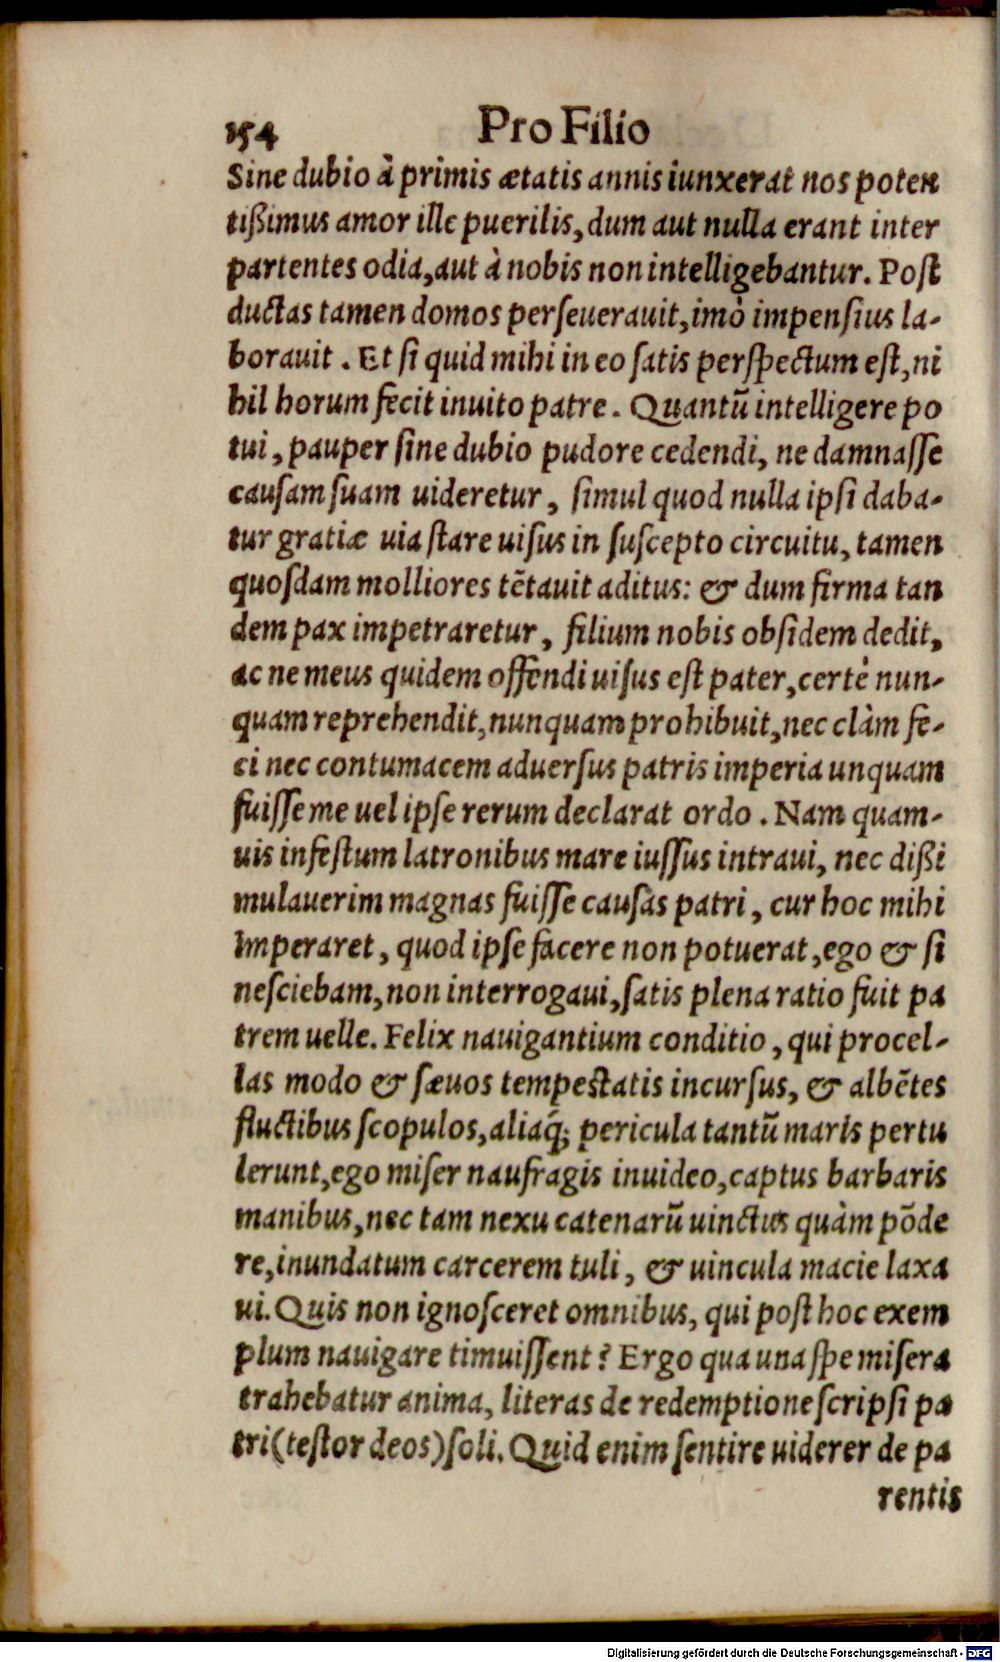 154 Pro Filio
Sine dubio à primis ætatis annis iunxerat nos poten
tißimus amor ille puerilis, dum aut nulla erant inter
partentes odia, aut à nobis non intelligebantur. Post
ductas tamen domos perseuerauit, imò impensius la-
borauit. Et si quid mihi in eo satis perspectum est, ni
hil horum fecit inuito patre. Quantũ intelligere po
tui, pauper sine dubio pudore cedendi, ne damnasse
causam suam uideretur, simul quod nulla ipsi daba-
tur gratiæ uia stare uisus in suscepto circuitu, tamen
quosdam molliores tẽtauit aditus: & dum firma tan
dem pax impetraretur, filium nobis obsidem dedit,
ac ne meus quidem offendi uisus est pater, certè nun-
quam reprehendit, nunquam prohibuit, nec clàm fe-
ci nec contumacem aduersus patris imperia unquam
fuisse me uel ipse rerum declarat ordo. Nam quam-
uis infestum latronibus mare iussus intraui, nec dißi
mulauerim magnas fuisse causas patri, cur hoc mihi
imperaret, quod ipse facere non potuerat, ego & si
nesciebam, non interrogaui, satis plena ratio fuit pa
trem uelle. Felix nauigantium conditio, qui procel-
las modo & sæuos tempestatis incursus, & albẽtes
fluctibus scopulos, aliaq́; pericula tantũ maris pertu
lerunt, ego miser naufragis inuideo, captus barbaris
manibus, nec tam nexu catenarũ uinctus quàm põde
re, inundatum carcerem tuli, & uincula macie laxa
ui. Quis non ignosceret omnibus, qui post hoc exem
plum nauigare timuissent? Ergo qua una spe misera
trahebatur anima, literas de redemptione scripsi pa
tri (testor deos) soli. Quid enim sentire uiderer de pa
rentis
Digitalisierung gefördert durch die Deutsche Forschungsgemeinschaft - DFG